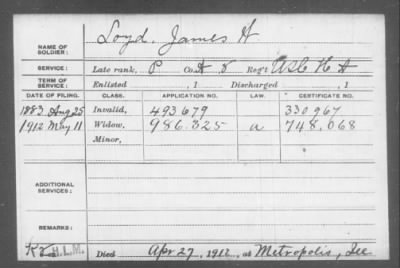 NAME OF SOLDIER: Loyd, James H
SERVICE: Late rank, P Co. A 8 Reg't USC H A
TERM OF SERVICE: Enlisted , 1 Discharged , 1
DATE OF FILING. CLASS. APPLICATION NO. LAW. CERTIFICATE NO.
1883 Aug 25 Invalid, 493679 330967
1912 May 11 Widow, 986.325 a 748,068
Minor,
ADDITIONAL SERVICES:
REMARKS:
Died Apr 27, 1912, at Metropolis, Ill